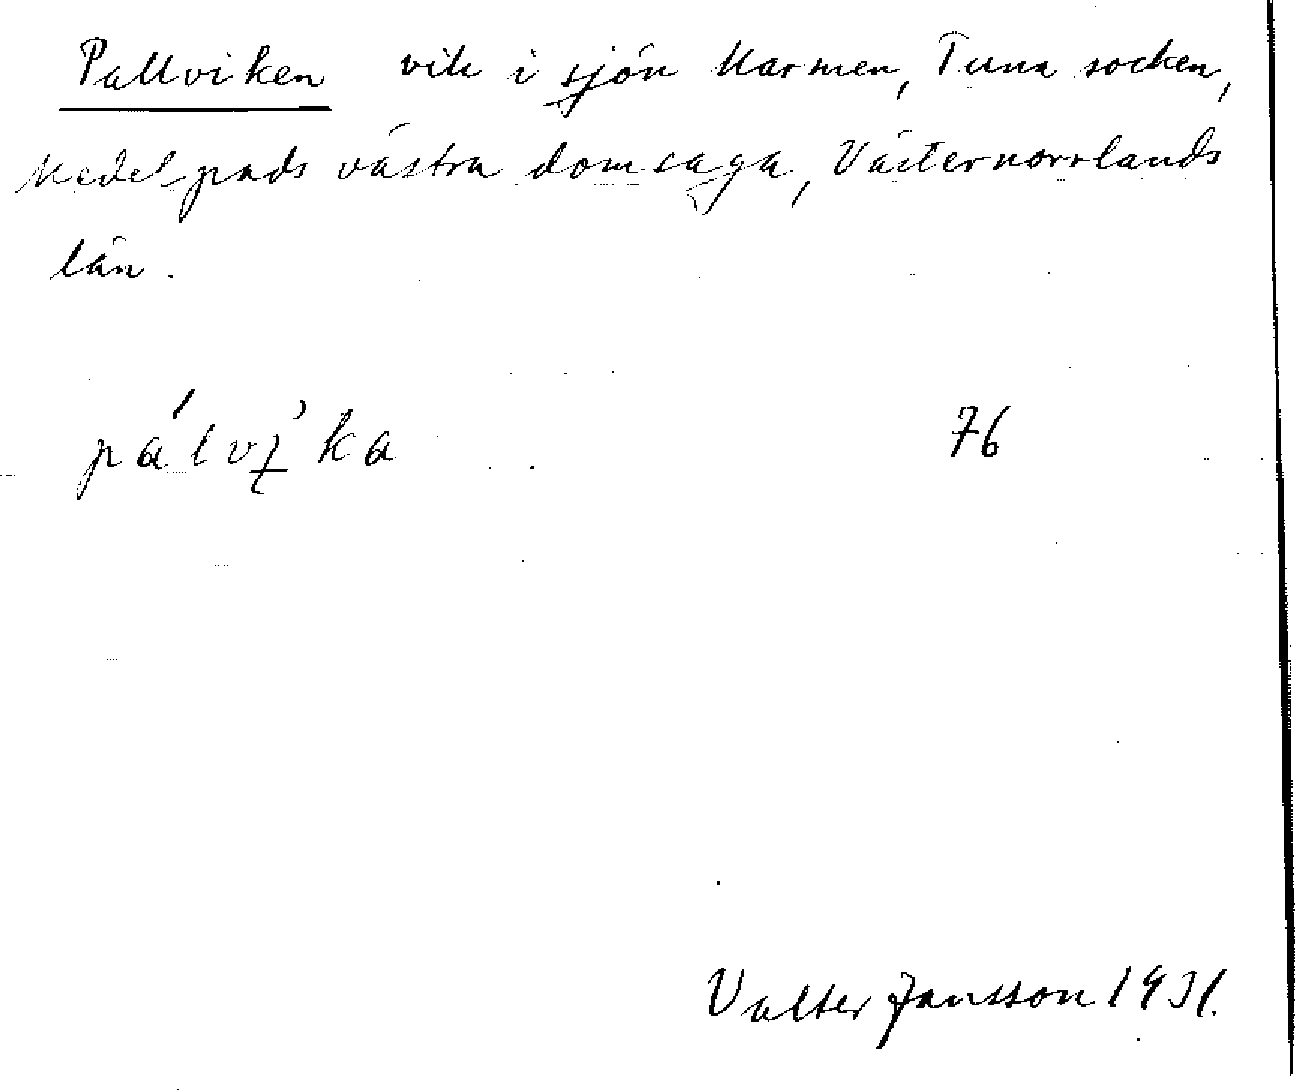 Pallviken vik i sjön Marmen, Tuna socken,
Medelpads västra domsaga, Västernorrlands
län.
76
Valter Jansson 1931.